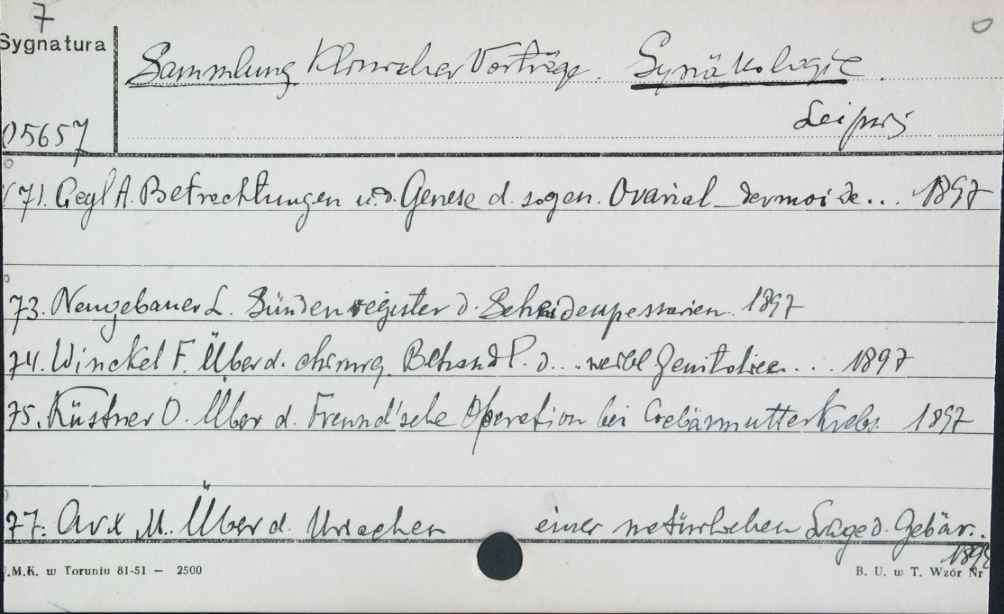 7
Sygnatura
Sammlung Klinischer Vorträge. Gynäkologie.
Leipzig
05657
71. Gegl A. Betrachtungen u. d. Genese d. sogen. Ovarial-dermoide... 1897
73. Neugebauer L. Sündenregister d. Scheidenpessarien. 1897
74. Winckel F. Über d. chirurg. Behandl. d... weibl Genitalien... 1897
75. Küstner O. Über d. Freund'sche Operation bei Gebärmutterkrebs 1897
77. M. Über d. Ursachen einer Lage d. Gebär..
.M.K. w Toruniu 81-51 — 2500
B. U. w T. Wzór Nr